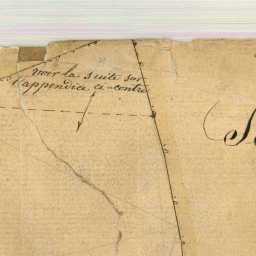 voir la suite sur
l'appendice ci-contre